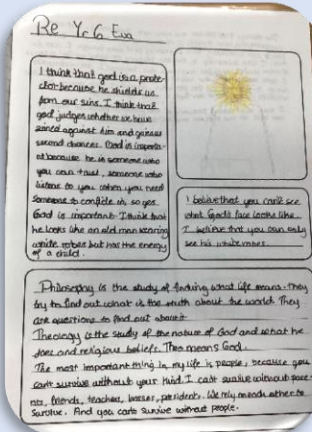 Re Yr 6 Eva
I think that god is a prote-
ctor because he shields us
from our sins. I think that
god judges whether we have
sined against him and gives us
second chances. God is importa-
nt because he is someone who
you can trust, someone who
listens to you when you need
someone to confide in, so yes
God is important. I think that
he looks like an old man wearing
white robes but has the energy
of a child.
I believe that you can't see
what God's face looks like.
I believe that you can only
see his white robes.
Philosophy is the study of finding what life means. They
try to find out what is the truth about the world. They
ask questions to find out about it
Theology is the study of the nature of God and what he
does and religious beliefs. Theo means God.
The most important thing in my life is people, because you
can't survive without your kind. I can't survive without pare-
nts, friends, teachers, bosses, presidents. We rely on each other to
survive. And you can't survive without people.